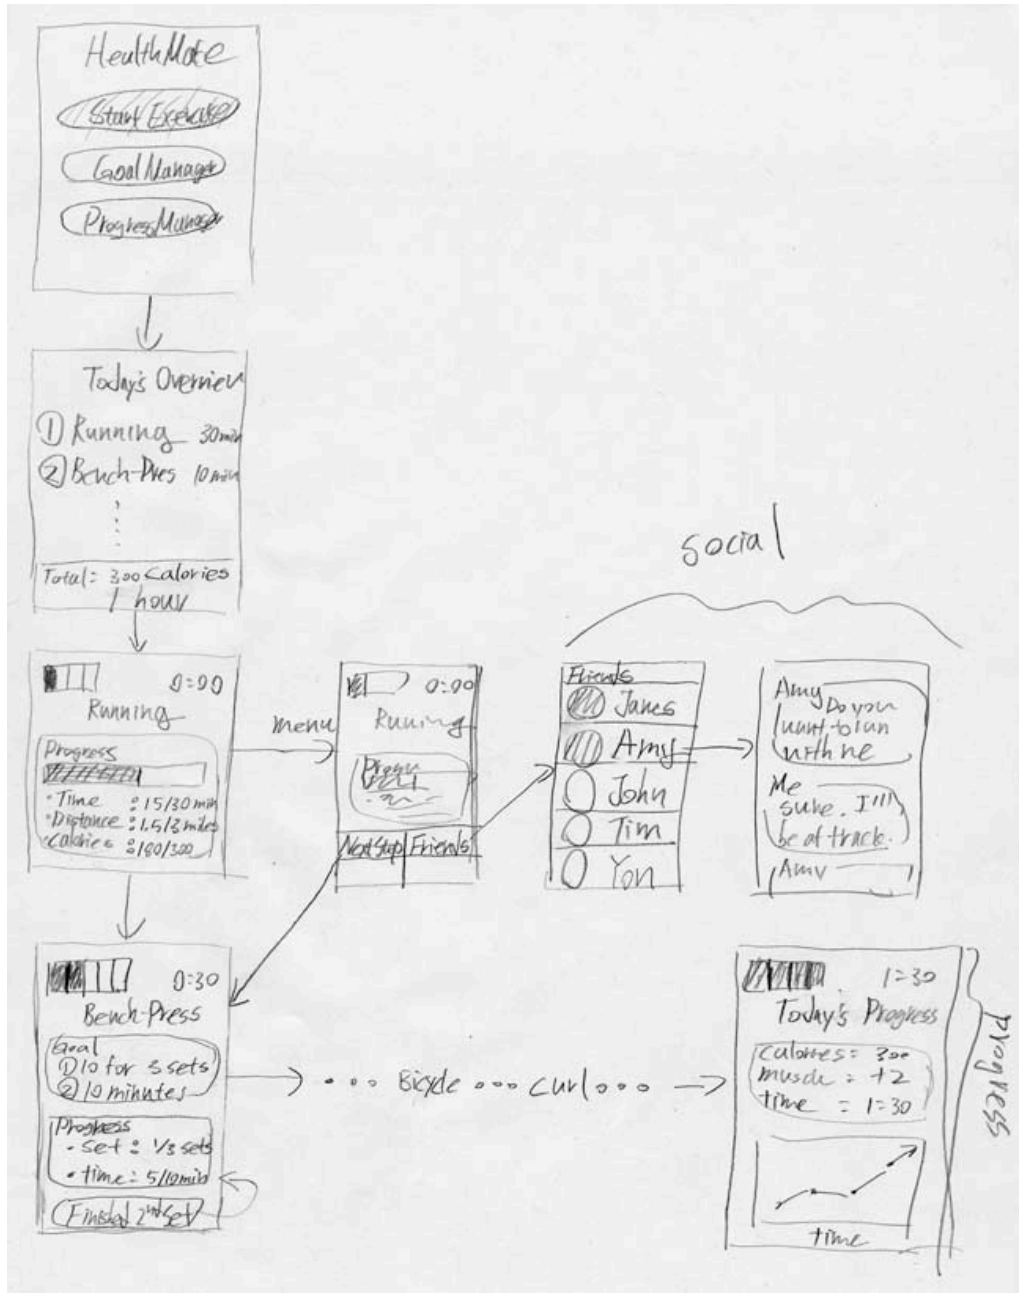 HealthMate
Start Exercise
Goal Manager
Progress Manager
Today's Overview
① Running 30min
② Bench-Pres 10 min
Total: 300 Calories
1 hour
social
0:00
Running
Progress
• Time : 15/30 min
• Distance : 1.5/3 miles
• Calories : 180/300
menu
0:00
Runing
Next Step Friends
Friends
James
Amy
John
Tim
Yon
Amy
Do you
want to run
with me
Me
sure. I'll
be at track.
Amy
0:30
Bench-Press
Goal
① 10 for 3 sets
② 10 minutes
Progress
• set : 1/3 sets
• time : 5/10min
Finished 2nd Set
Bicycle
curl
1:30
Today's Progress
calories = 300
muscle = +2
time = 1:30
time
progress